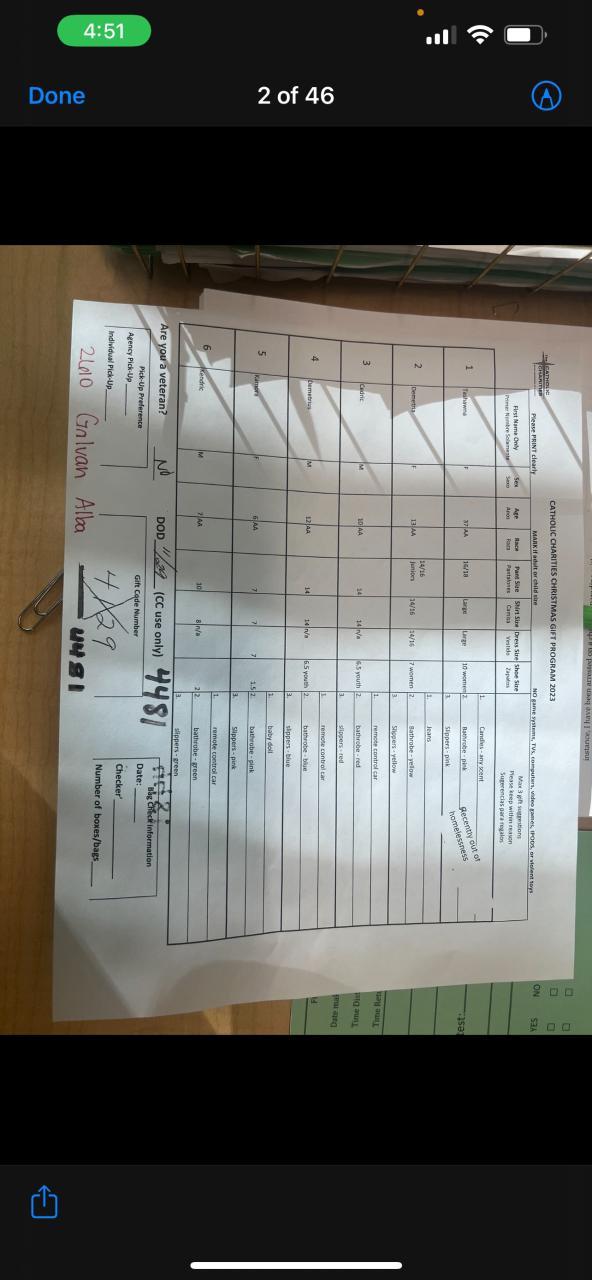 4:51
Done
2 of 46
CATHOLIC CHARITIES
CATHOLIC CHARITIES CHRISTMAS GIFT PROGRAM 2023
Please PRINT clearly MARK if adult or child size NO game systems, TVs, computers, video games, IPODS, or violent toys
First Name Only Sex Age Race Pant Size Shirt Size Dress Size Shoe Size Max 3 gift suggestions
Primer Nombre Solamente Sexo Anos Raza Pantalones Camisa Vestido Zapatos Please keep within reason
Sugerencias para regalos
1. Candles - any scent
1 Tashawna F 37 AA 16/18 Large Large 10 women 2. Bathrobe - pink
3. Slippers - pink
Recently out of
homelessness
1. Jeans
2 Demetria F 13 AA 14/16 Juniors 14/16 14/16 7 women 2. Bathrobe - yellow
3. Slippers - yellow
1. remote control car
3 Cedric M 10 AA 14 14 n/a 6.5 youth 2. bathrobe - red
3. slippers - red
1. remote control car
4 Demetrius M 12 AA 14 14 n/a 6.5 youth 2. bathrobe - blue
3. slippers - blue
1. baby doll
5 F 6 AA 7 7 7 1.5 2. bathrobe - pink
3. Slippers - pink
1. remote control car
6 Kendric M 7 AA 10 8 n/a 2 2. bathrobe - green
3. slippers - green
Are you a veteran? No DOD (CC use only) 4481
Pick-Up Preference Gift Code Number Bag Check Information
Agency Pick-Up Date:
Individual Pick-Up Checker
Number of boxes/bags
2610 Alba 4481
Time Dis
Date mai
NO YES